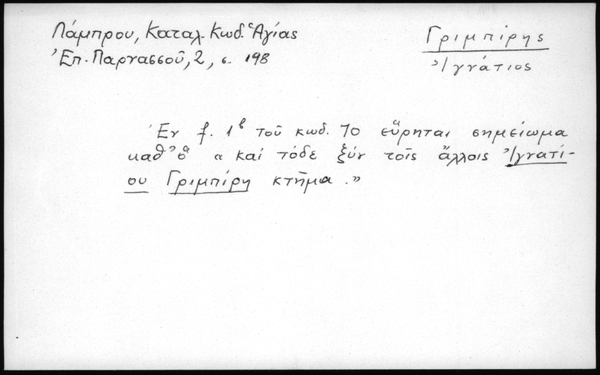 Λάμπρου, Καταλ. Κωδ. Ἁγίας
Ἐπ. Παρνασσοῦ, 2, σ. 198
Γριμπίρης
Ἰγνάτιος
Ἐν f. 1β τοῦ κωδ. 70 εὕρηται σημείωμα
καθ' ὃ « καὶ τόδε ξὺν τοῖς ἄλλοις Ἰγνατί-
ου Γριμπίρη κτῆμα.»